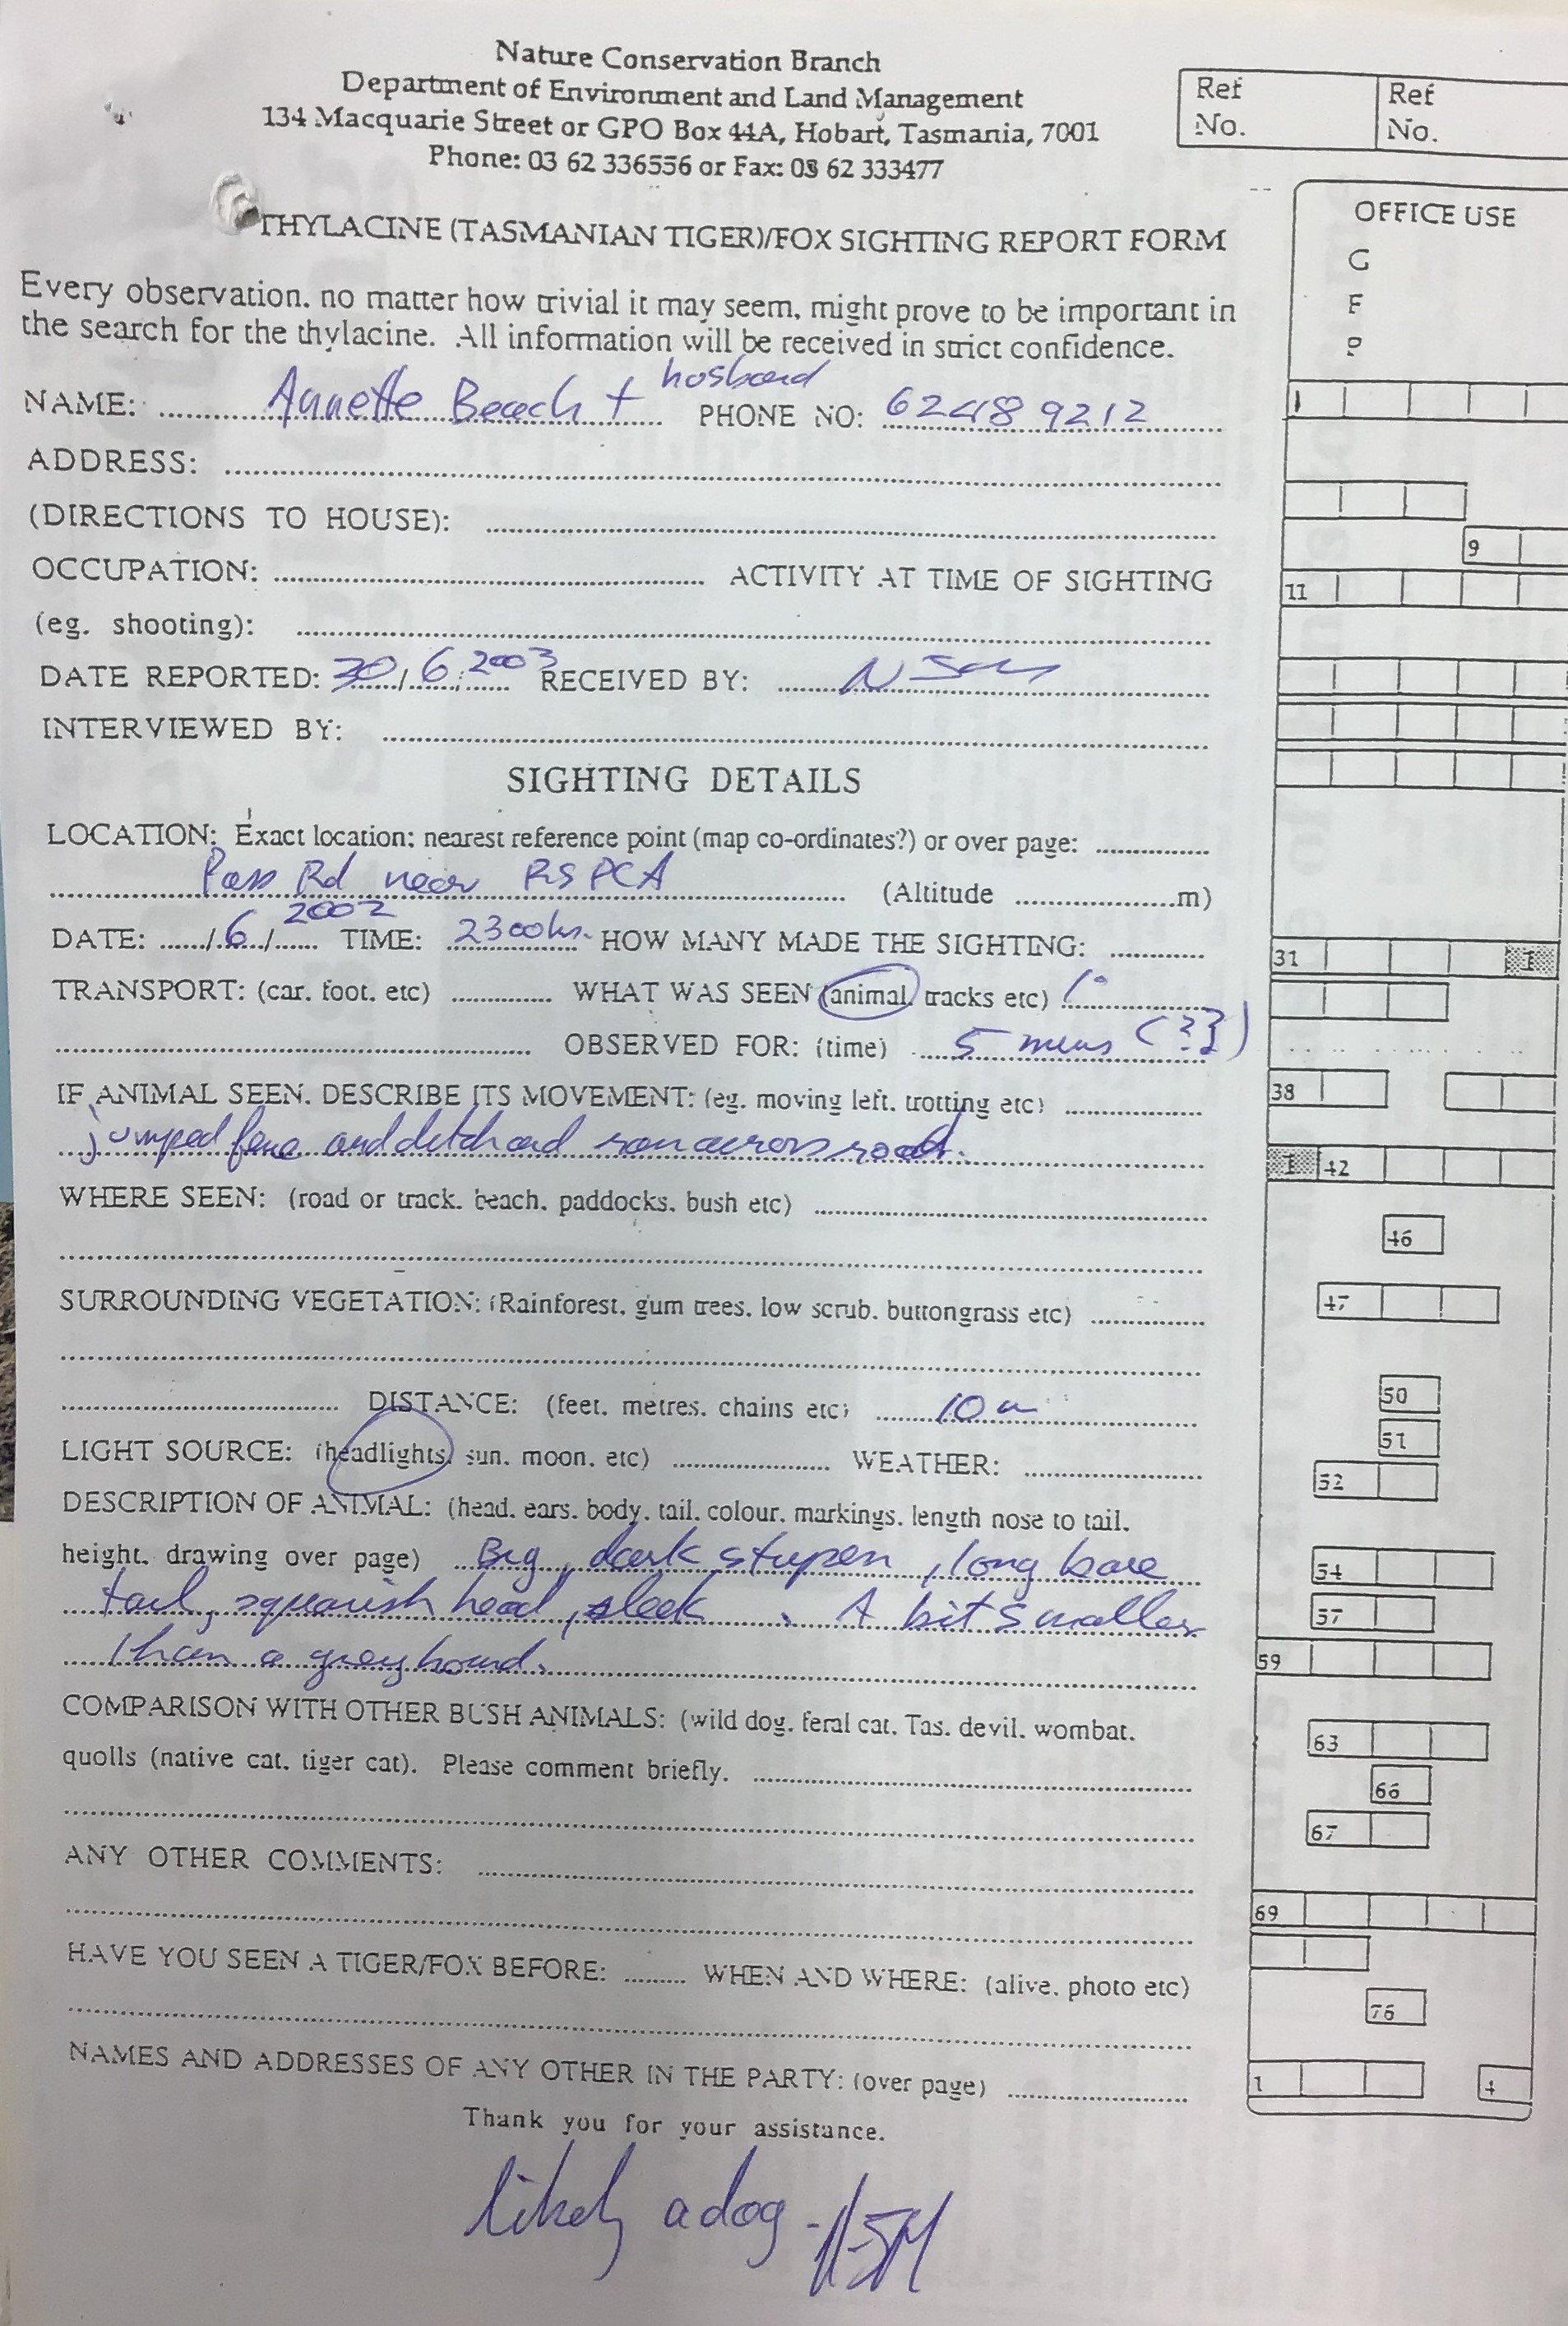 Nature Conservation Branch
Department of Environment and Land Management
134 Macquarie Street or GPO Box 44A, Hobart, Tasmania, 7001
Phone: 03 62 336556 or Fax: 03 62 333477
Ref No.
Ref No.
THYLACINE (TASMANIAN TIGER)/FOX SIGHTING REPORT FORM
Every observation, no matter how trivial it may seem, might prove to be important in
the search for the thylacine. All information will be received in strict confidence.
NAME: Annette Beech + husband PHONE NO: 62489212
ADDRESS:
(DIRECTIONS TO HOUSE):
OCCUPATION: ACTIVITY AT TIME OF SIGHTING
(eg. shooting):
DATE REPORTED: 30/6/2003 RECEIVED BY: N
INTERVIEWED BY:
SIGHTING DETAILS
LOCATION: Exact location; nearest reference point (map co-ordinates?) or over page:
Pass Rd near RSPCA (Altitude m)
DATE: /6/2002 TIME: 2300hr. HOW MANY MADE THE SIGHTING:
TRANSPORT: (car, foot, etc) WHAT WAS SEEN (animal, tracks etc)
OBSERVED FOR: (time) 5 mins (??)
IF ANIMAL SEEN, DESCRIBE ITS MOVEMENT: (eg. moving left, trotting etc)
jumped fence and ditch and ran across road.
WHERE SEEN: (road or track, beach, paddocks, bush etc)
SURROUNDING VEGETATION: (Rainforest, gum trees, low scrub, buttongrass etc)
DISTANCE: (feet, metres, chains etc) 10 m
LIGHT SOURCE: (headlights, sun, moon, etc) WEATHER:
DESCRIPTION OF ANIMAL: (head, ears, body, tail, colour, markings, length nose to tail,
height, drawing over page) Big, dark, long bare
tail, squarish head, sleek. A bit smaller
than a greyhound.
COMPARISON WITH OTHER BUSH ANIMALS: (wild dog, feral cat, Tas. devil, wombat,
quolls (native cat, tiger cat). Please comment briefly.
ANY OTHER COMMENTS:
HAVE YOU SEEN A TIGER/FOX BEFORE: WHEN AND WHERE: (alive, photo etc)
NAMES AND ADDRESSES OF ANY OTHER IN THE PARTY: (over page)
Thank you for your assistance.
likely a dog -
OFFICE USE
G
F
P
1
9
11
31 I
38
I 42
46
47
50
51
52
54
57
59
63
66
67
69
76
1 4